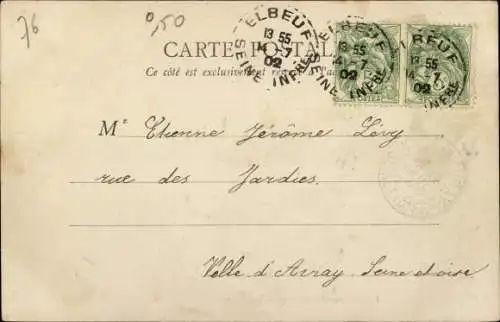 76
0,50
CARTE POSTALE
Ce côté est exclusivement
ELBEUF
13 55
14 -7
02
SEINE INFRE
ELBEUF
13 55
14 -7
02
SEINE INFRE
ELBEUF
13 55
14 -7
02
SEINE INFRE
Me Etienne Jérôme Lévy
rue des Jardies.
Ville d'Avray Seine et oise